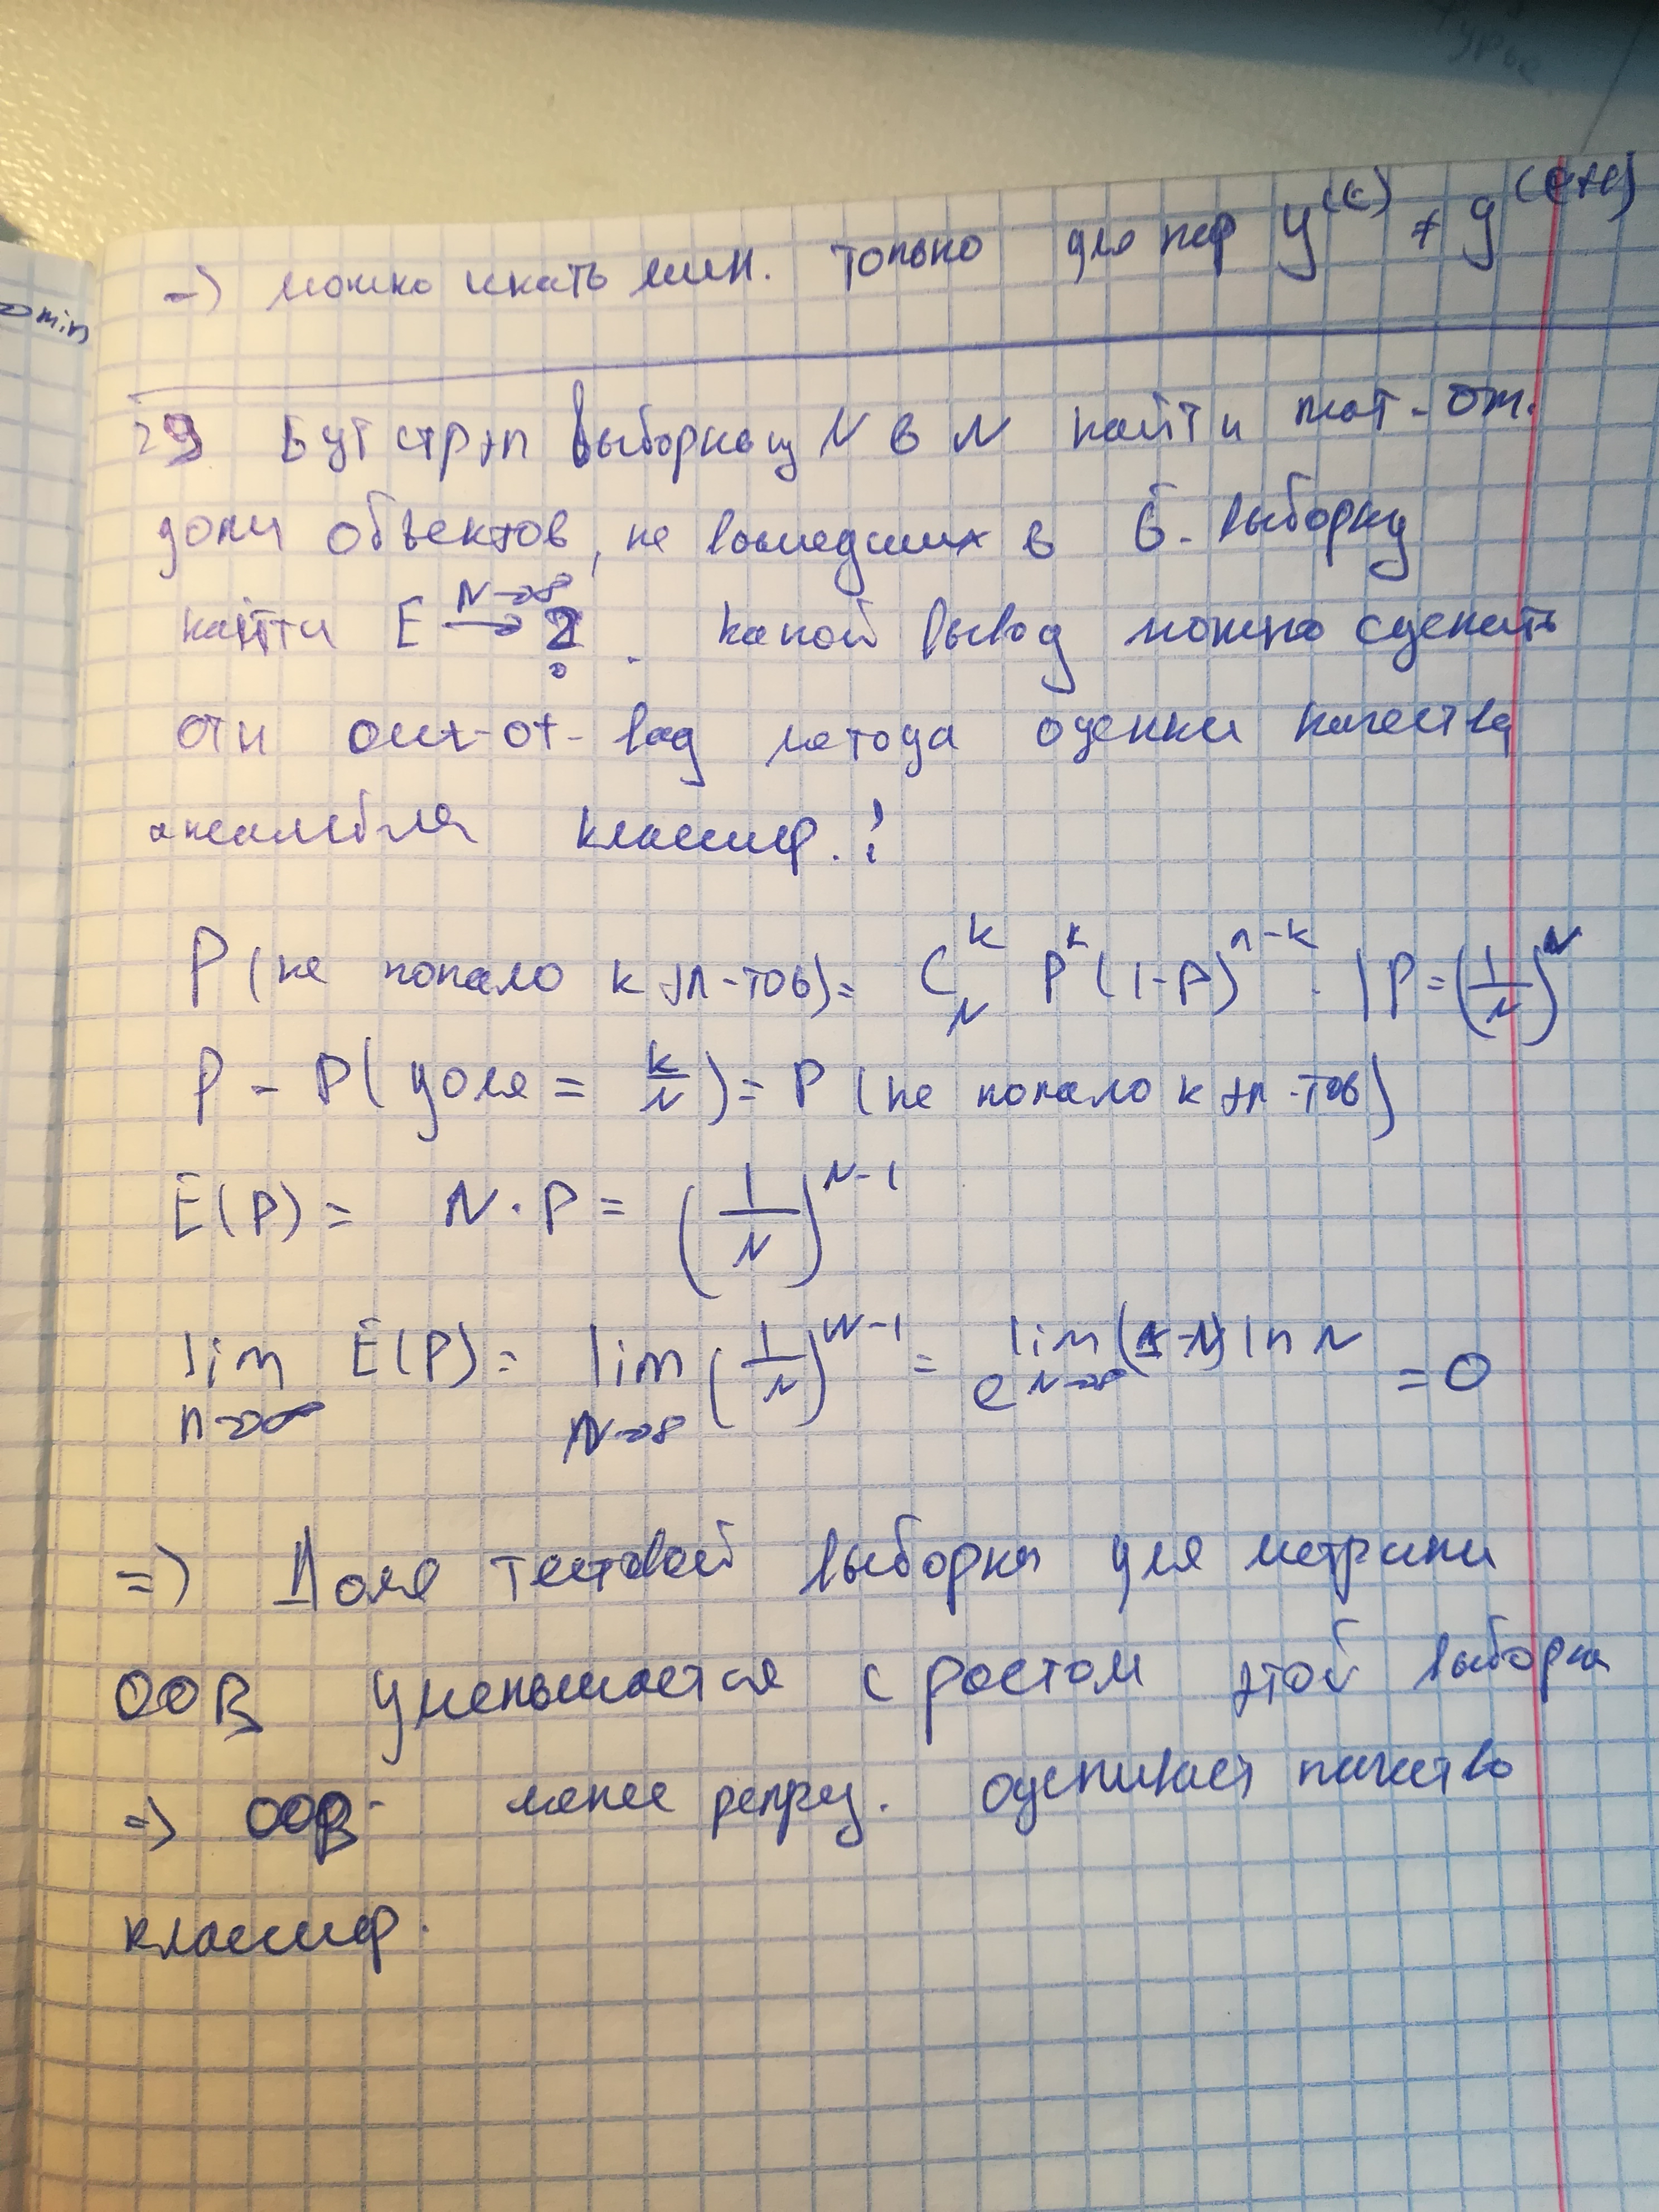 => можно искать мин. только для пер y^(i) ≠ y^(i+1)
min
29 Бутстрэп выборка из N в N найти мат-ож.
доли объектов, не вошедших в б. выборку
найти E N→∞ → ? . Какой вывод можно сделать
отн out-of-bag метода оценки качества
ансамбля классиф.?
P(не попало k эл-тов) = C_N^k P^k (1-P)^(n-k) . | P = (1/N)^N
P - P(доля = k/N) = P(не попало k эл-тов)
E(P) = N·P = (1/N)^(N-1)
lim n→∞ E(P) = lim N→∞ (1/N)^(N-1) = e^(lim N→∞ (1-N) ln N) = 0
=> Доля тестовой выборки для метрики
OOB уменьшается с ростом этой выборки
=> OOB- менее репрез. оценивает качество
классиф.